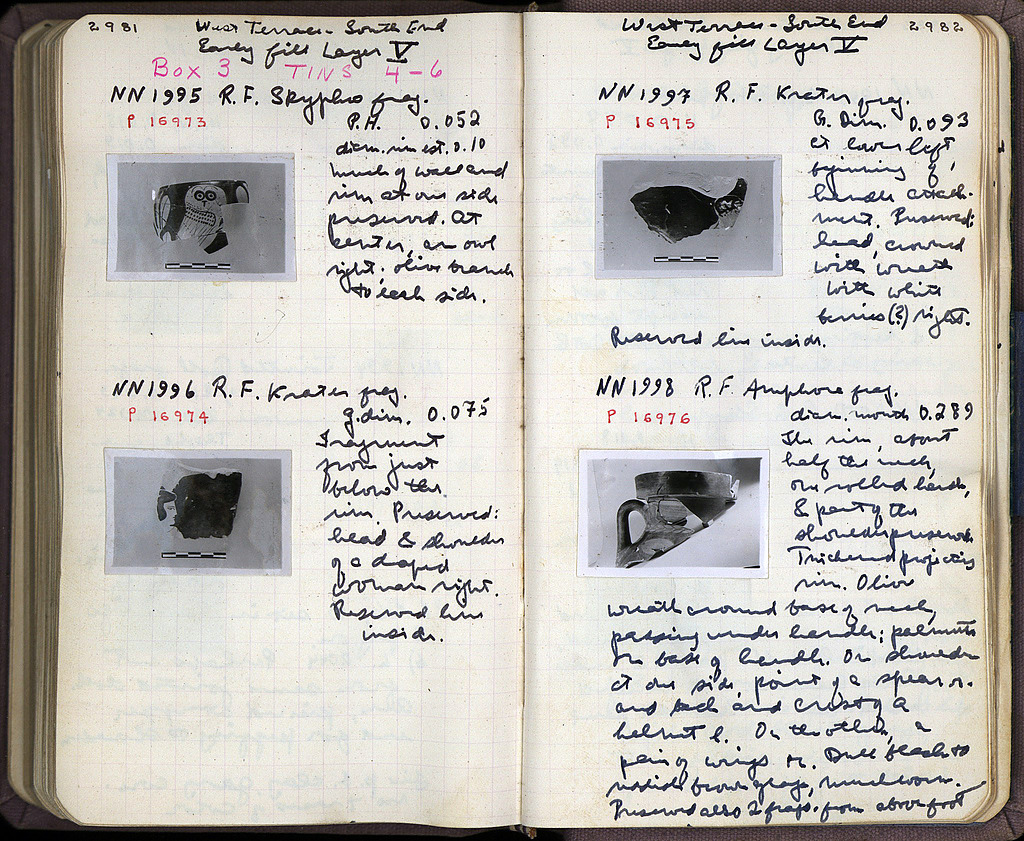 2981
West Terrace - South End
Early fill Layer V
Box 3 TINS 4-6
NN1995 R.F. Skypho frag.
P 16973
P.H. 0.052
diam. rim est. 0.10
Much of wall and
rim at one side
preserved. At
center, an owl
right. Olive branch
to each side.
NN1996 R.F. Krater frag.
P 16974
g.dim. 0.075
Fragment
from just
below the
rim. Preserved:
head & shoulder
of a draped
woman right.
Reserved line
inside.
2982
West Terrace - South End
Early fill Layer V
NN1997 R.F. Krater frag.
P 16975
G. Dim. 0.093
At lower left
beginning of
handle attach-
ment. Preserved:
head, crowned
with wreath
with white
berries (?) right.
Reserved line inside.
NN1998 R.F. Amphora frag.
P 16976
diam. mouth 0.289
The rim, about
half the neck,
one rolled handle,
& part of the
shoulder preserved.
Thickened projecting
rim. Olive
wreath around base of neck,
passing under handle; palmette
on base of handle. On shoulder
at one side, point of a spear r.
and and crest of a
helmet l. On the other, a
pair of wings r. Dull black to
reddish brown glaze, much worn.
Preserved also 2 frags. from above foot